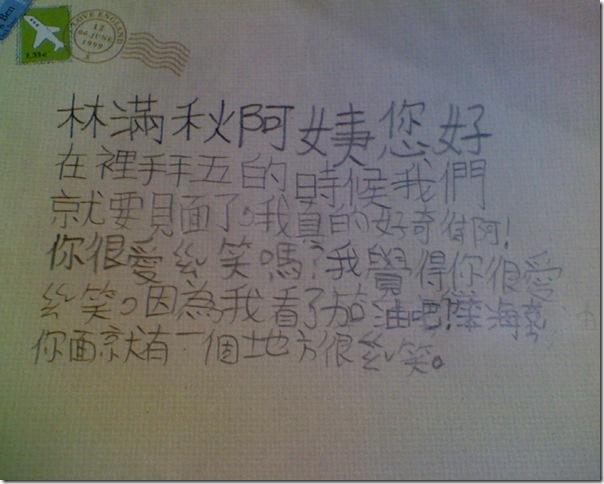 Ben
LOVE ENGLAND
12
06 JUNE
1999
林滿秋阿姨您好
在裡拜五的時候我們
就要見面了,我真的好奇待阿!
你很愛笑嗎?我覺得你很愛
笑,因為我看了茄油吧!笨海豹
你面就有一個地方很笑。